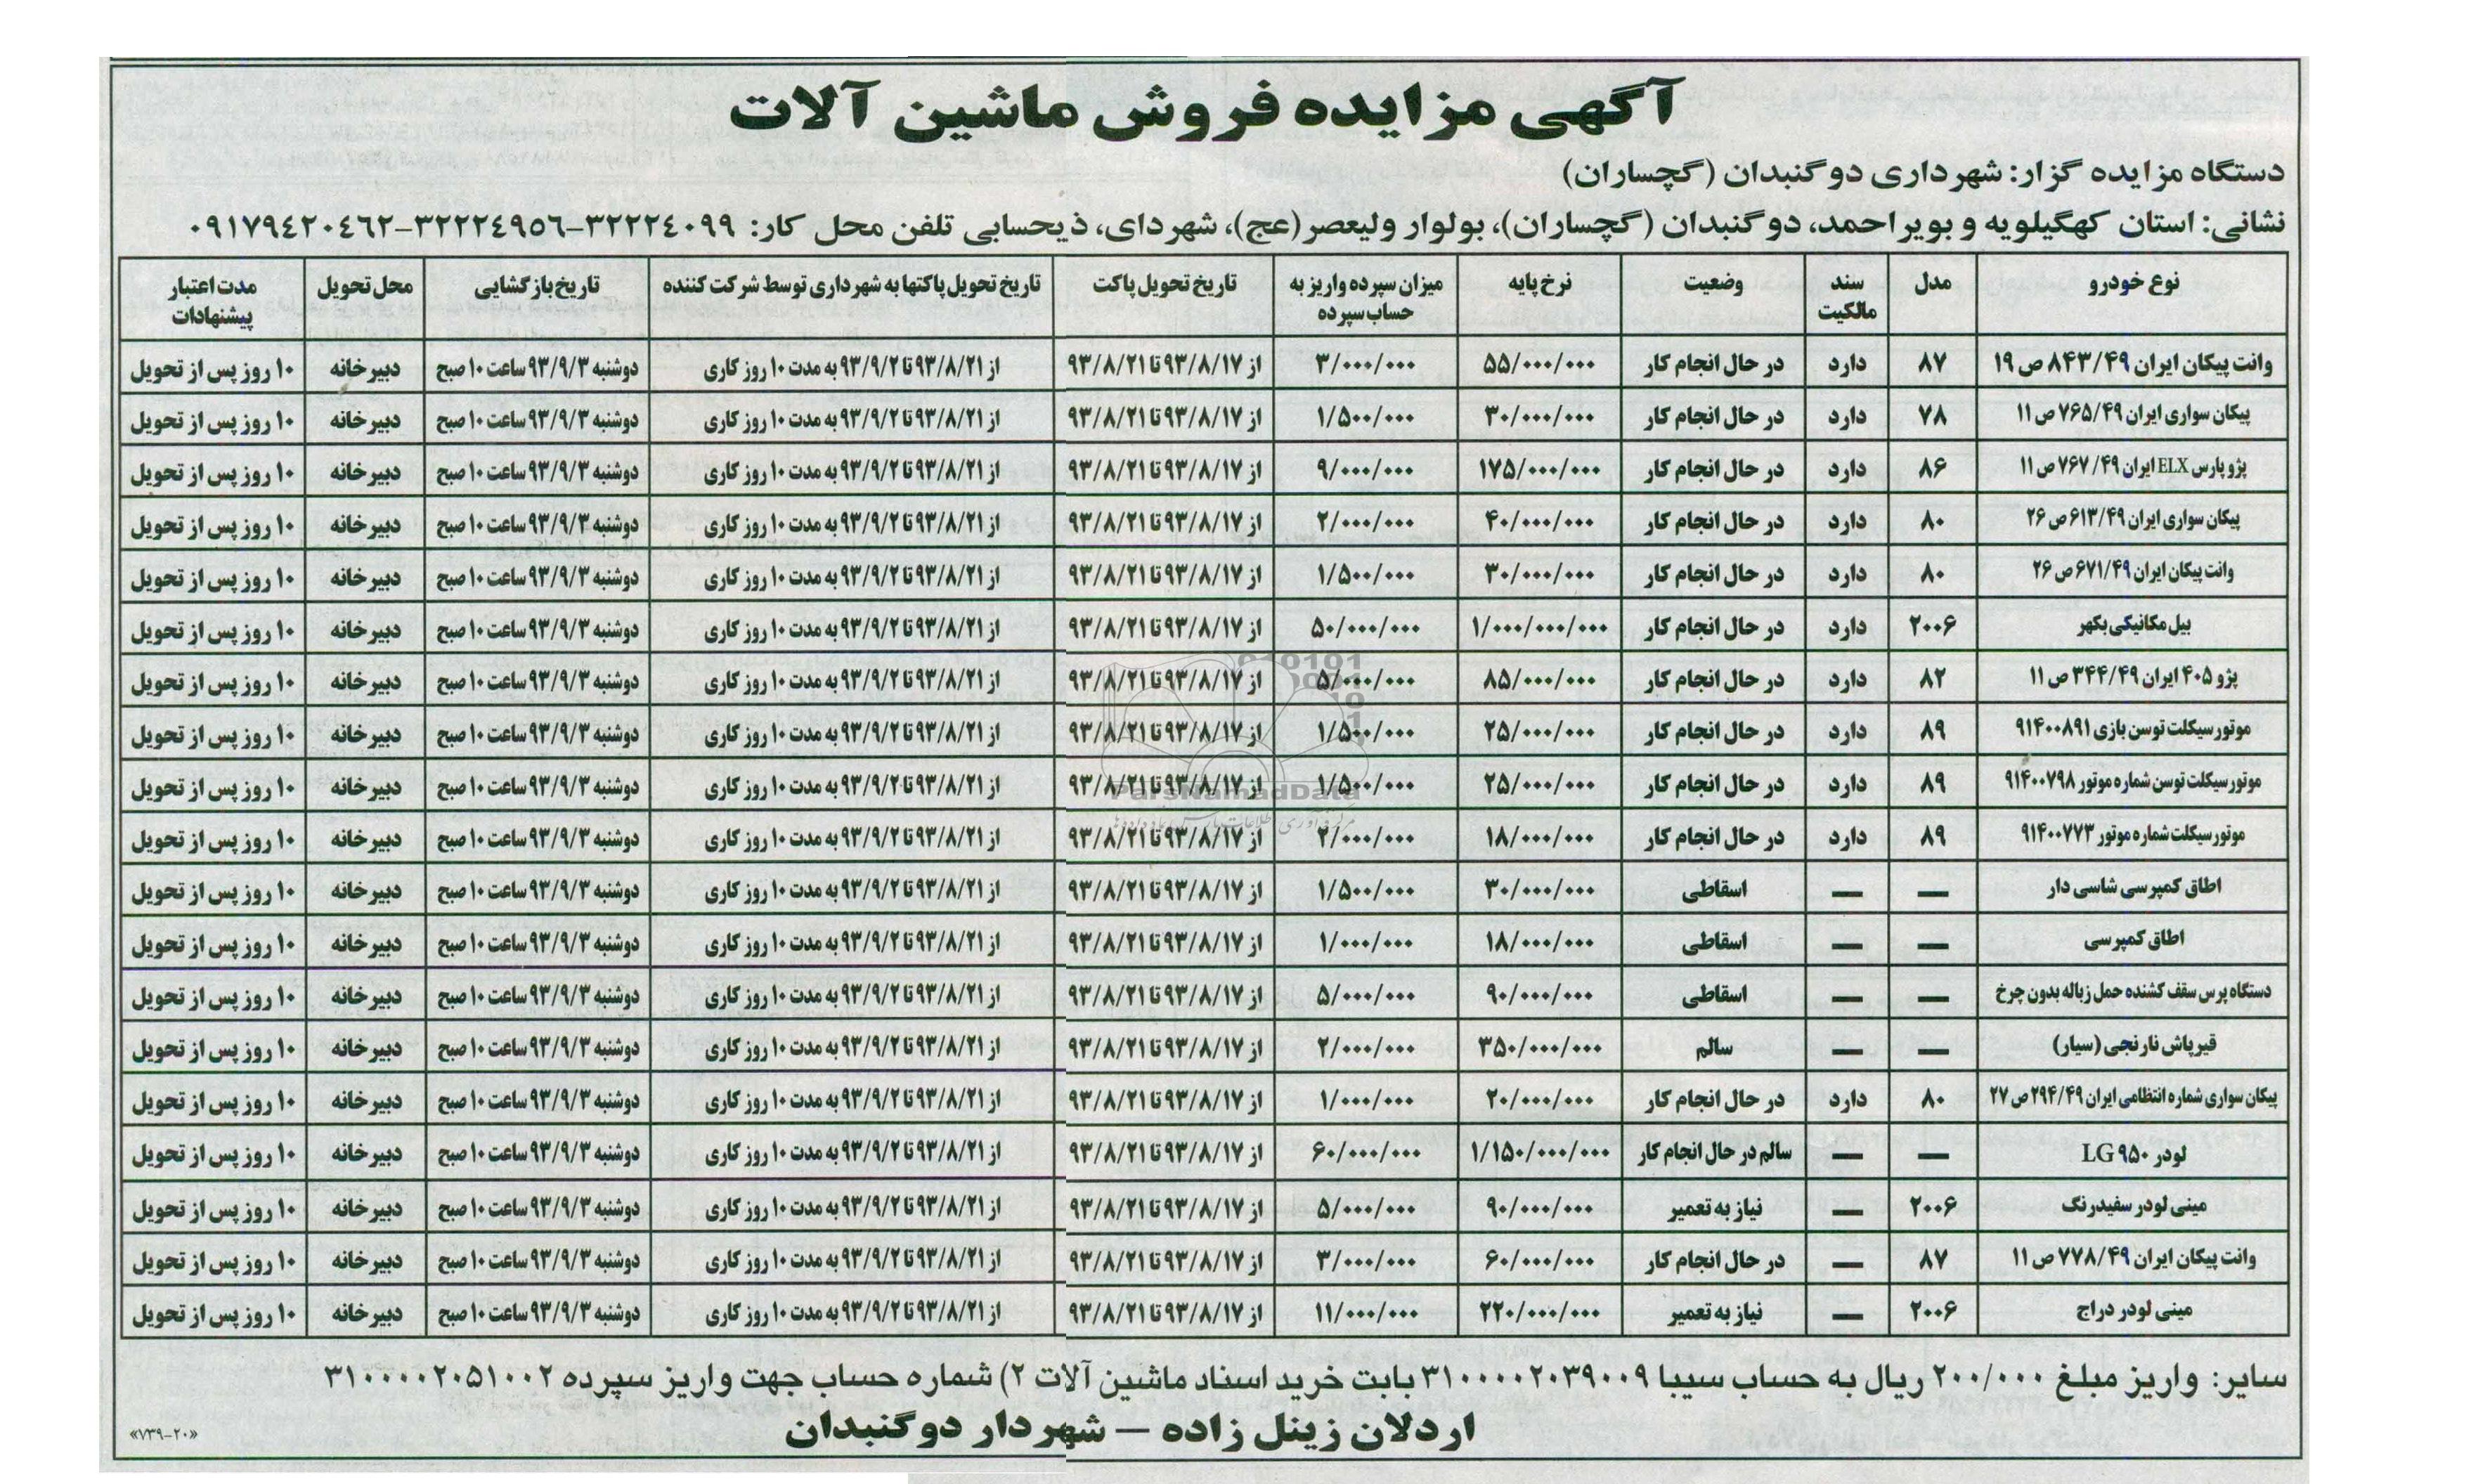 آگهی مزایده فروش ماشین آلات
دستگاه مزایده گزار: شهرداری دوگنبدان (گچساران)
نشانی: استان کهگیلویه و بویراحمد، دوگنبدان (گچساران)، بولوار ولیعصر(عج)، شهردای، ذیحسابی تلفن محل کار: ۳۲۲۲۴۰۹۹-۳۲۲۲۴۹۵۶-۰۹۱۷۹۴۲۰۴۶۲
نوع خودرو | مدل | سند مالکیت | وضعیت | نرخ پایه | میزان سپرده واریز به حساب سپرده | تاریخ تحویل پاکت | تاریخ تحویل پاکتها به شهرداری توسط شرکت کننده | تاریخ بازگشایی | محل تحویل | مدت اعتبار پیشنهادات
وانت پیکان ایران ۸۴۳/۴۹ ص ۱۹ | ۸۷ | دارد | در حال انجام کار | ۵۵/۰۰۰/۰۰۰ | ۳/۰۰۰/۰۰۰ | از ۹۳/۸/۱۷ تا ۹۳/۸/۲۱ | از ۹۳/۸/۲۱ تا ۹۳/۹/۲ به مدت ۱۰ روز کاری | دوشنبه ۹۳/۹/۳ ساعت ۱۰ صبح | دبیرخانه | ۱۰ روز پس از تحویل
پیکان سواری ایران ۷۶۵/۴۹ ص ۱۱ | ۷۸ | دارد | در حال انجام کار | ۳۰/۰۰۰/۰۰۰ | ۱/۵۰۰/۰۰۰ | از ۹۳/۸/۱۷ تا ۹۳/۸/۲۱ | از ۹۳/۸/۲۱ تا ۹۳/۹/۲ به مدت ۱۰ روز کاری | دوشنبه ۹۳/۹/۳ ساعت ۱۰ صبح | دبیرخانه | ۱۰ روز پس از تحویل
پژو پارس ELX ایران ۷۶۷/۴۹ ص ۱۱ | ۸۶ | دارد | در حال انجام کار | ۱۷۵/۰۰۰/۰۰۰ | ۹/۰۰۰/۰۰۰ | از ۹۳/۸/۱۷ تا ۹۳/۸/۲۱ | از ۹۳/۸/۲۱ تا ۹۳/۹/۲ به مدت ۱۰ روز کاری | دوشنبه ۹۳/۹/۳ ساعت ۱۰ صبح | دبیرخانه | ۱۰ روز پس از تحویل
پیکان سواری ایران ۶۱۳/۴۹ ص ۲۶ | ۸۰ | دارد | در حال انجام کار | ۴۰/۰۰۰/۰۰۰ | ۲/۰۰۰/۰۰۰ | از ۹۳/۸/۱۷ تا ۹۳/۸/۲۱ | از ۹۳/۸/۲۱ تا ۹۳/۹/۲ به مدت ۱۰ روز کاری | دوشنبه ۹۳/۹/۳ ساعت ۱۰ صبح | دبیرخانه | ۱۰ روز پس از تحویل
وانت پیکان ایران ۶۷۱/۴۹ ص ۲۶ | ۸۰ | دارد | در حال انجام کار | ۳۰/۰۰۰/۰۰۰ | ۱/۵۰۰/۰۰۰ | از ۹۳/۸/۱۷ تا ۹۳/۸/۲۱ | از ۹۳/۸/۲۱ تا ۹۳/۹/۲ به مدت ۱۰ روز کاری | دوشنبه ۹۳/۹/۳ ساعت ۱۰ صبح | دبیرخانه | ۱۰ روز پس از تحویل
بیل مکانیکی بکهر | ۲۰۰۶ | دارد | در حال انجام کار | ۱/۰۰۰/۰۰۰/۰۰۰ | ۵۰/۰۰۰/۰۰۰ | از ۹۳/۸/۱۷ تا ۹۳/۸/۲۱ | از ۹۳/۸/۲۱ تا ۹۳/۹/۲ به مدت ۱۰ روز کاری | دوشنبه ۹۳/۹/۳ ساعت ۱۰ صبح | دبیرخانه | ۱۰ روز پس از تحویل
پژو ۴۰۵ ایران ۳۴۴/۴۹ ص ۱۱ | ۸۲ | دارد | در حال انجام کار | ۸۵/۰۰۰/۰۰۰ | ۵/۰۰۰/۰۰۰ | از ۹۳/۸/۱۷ تا ۹۳/۸/۲۱ | از ۹۳/۸/۲۱ تا ۹۳/۹/۲ به مدت ۱۰ روز کاری | دوشنبه ۹۳/۹/۳ ساعت ۱۰ صبح | دبیرخانه | ۱۰ روز پس از تحویل
موتور سیکلت توسن بازی ۹۱۴۰۰۸۹۱ | ۸۹ | دارد | در حال انجام کار | ۲۵/۰۰۰/۰۰۰ | ۱/۵۰۰/۰۰۰ | از ۹۳/۸/۱۷ تا ۹۳/۸/۲۱ | از ۹۳/۸/۲۱ تا ۹۳/۹/۲ به مدت ۱۰ روز کاری | دوشنبه ۹۳/۹/۳ ساعت ۱۰ صبح | دبیرخانه | ۱۰ روز پس از تحویل
موتور سیکلت توسن شماره موتور ۹۱۴۰۰۷۹۸ | ۸۹ | دارد | در حال انجام کار | ۲۵/۰۰۰/۰۰۰ | ۱/۵۰۰/۰۰۰ | از ۹۳/۸/۱۷ تا ۹۳/۸/۲۱ | از ۹۳/۸/۲۱ تا ۹۳/۹/۲ به مدت ۱۰ روز کاری | دوشنبه ۹۳/۹/۳ ساعت ۱۰ صبح | دبیرخانه | ۱۰ روز پس از تحویل
موتور سیکلت شماره موتور ۹۱۴۰۰۷۷۳ | ۸۹ | دارد | در حال انجام کار | ۱۸/۰۰۰/۰۰۰ | ۲/۰۰۰/۰۰۰ | از ۹۳/۸/۱۷ تا ۹۳/۸/۲۱ | از ۹۳/۸/۲۱ تا ۹۳/۹/۲ به مدت ۱۰ روز کاری | دوشنبه ۹۳/۹/۳ ساعت ۱۰ صبح | دبیرخانه | ۱۰ روز پس از تحویل
اطاق کمپرسی شاسی دار | — | — | اسقاطی | ۳۰/۰۰۰/۰۰۰ | ۱/۵۰۰/۰۰۰ | از ۹۳/۸/۱۷ تا ۹۳/۸/۲۱ | از ۹۳/۸/۲۱ تا ۹۳/۹/۲ به مدت ۱۰ روز کاری | دوشنبه ۹۳/۹/۳ ساعت ۱۰ صبح | دبیرخانه | ۱۰ روز پس از تحویل
اطاق کمپرسی | — | — | اسقاطی | ۱۸/۰۰۰/۰۰۰ | ۱/۰۰۰/۰۰۰ | از ۹۳/۸/۱۷ تا ۹۳/۸/۲۱ | از ۹۳/۸/۲۱ تا ۹۳/۹/۲ به مدت ۱۰ روز کاری | دوشنبه ۹۳/۹/۳ ساعت ۱۰ صبح | دبیرخانه | ۱۰ روز پس از تحویل
دستگاه پرس سقف کشنده حمل زباله بدون چرخ | — | — | اسقاطی | ۹۰/۰۰۰/۰۰۰ | ۵/۰۰۰/۰۰۰ | از ۹۳/۸/۱۷ تا ۹۳/۸/۲۱ | از ۹۳/۸/۲۱ تا ۹۳/۹/۲ به مدت ۱۰ روز کاری | دوشنبه ۹۳/۹/۳ ساعت ۱۰ صبح | دبیرخانه | ۱۰ روز پس از تحویل
قیرپاش نارنجی (سیار) | — | — | سالم | ۳۵۰/۰۰۰/۰۰۰ | ۲/۰۰۰/۰۰۰ | از ۹۳/۸/۱۷ تا ۹۳/۸/۲۱ | از ۹۳/۸/۲۱ تا ۹۳/۹/۲ به مدت ۱۰ روز کاری | دوشنبه ۹۳/۹/۳ ساعت ۱۰ صبح | دبیرخانه | ۱۰ روز پس از تحویل
پیکان سواری شماره انتظامی ایران ۲۹۴/۴۹ ص ۲۷ | ۸۰ | دارد | در حال انجام کار | ۲۰/۰۰۰/۰۰۰ | ۱/۰۰۰/۰۰۰ | از ۹۳/۸/۱۷ تا ۹۳/۸/۲۱ | از ۹۳/۸/۲۱ تا ۹۳/۹/۲ به مدت ۱۰ روز کاری | دوشنبه ۹۳/۹/۳ ساعت ۱۰ صبح | دبیرخانه | ۱۰ روز پس از تحویل
لودر ۹۵۰ LG | — | — | سالم در حال انجام کار | ۱/۱۵۰/۰۰۰/۰۰۰ | ۶۰/۰۰۰/۰۰۰ | از ۹۳/۸/۱۷ تا ۹۳/۸/۲۱ | از ۹۳/۸/۲۱ تا ۹۳/۹/۲ به مدت ۱۰ روز کاری | دوشنبه ۹۳/۹/۳ ساعت ۱۰ صبح | دبیرخانه | ۱۰ روز پس از تحویل
مینی لودر سفیدرنگ | ۲۰۰۶ | — | نیاز به تعمیر | ۹۰/۰۰۰/۰۰۰ | ۵/۰۰۰/۰۰۰ | از ۹۳/۸/۱۷ تا ۹۳/۸/۲۱ | از ۹۳/۸/۲۱ تا ۹۳/۹/۲ به مدت ۱۰ روز کاری | دوشنبه ۹۳/۹/۳ ساعت ۱۰ صبح | دبیرخانه | ۱۰ روز پس از تحویل
وانت پیکان ایران ۷۷۸/۴۹ ص ۱۱ | ۸۷ | — | در حال انجام کار | ۶۰/۰۰۰/۰۰۰ | ۳/۰۰۰/۰۰۰ | از ۹۳/۸/۱۷ تا ۹۳/۸/۲۱ | از ۹۳/۸/۲۱ تا ۹۳/۹/۲ به مدت ۱۰ روز کاری | دوشنبه ۹۳/۹/۳ ساعت ۱۰ صبح | دبیرخانه | ۱۰ روز پس از تحویل
مینی لودر دراج | ۲۰۰۶ | — | نیاز به تعمیر | ۲۲۰/۰۰۰/۰۰۰ | ۱۱/۰۰۰/۰۰۰ | از ۹۳/۸/۱۷ تا ۹۳/۸/۲۱ | از ۹۳/۸/۲۱ تا ۹۳/۹/۲ به مدت ۱۰ روز کاری | دوشنبه ۹۳/۹/۳ ساعت ۱۰ صبح | دبیرخانه | ۱۰ روز پس از تحویل
ParsNamadData
سایر: واریز مبلغ ۲۰۰/۰۰۰ ریال به حساب سیبا ۳۱۰۰۰۰۲۰۳۹۰۰۹ بابت خرید اسناد ماشین آلات ۲) شماره حساب جهت واریز سپرده ۳۱۰۰۰۰۲۰۵۱۰۰۲
اردلان زینل زاده — شهردار دوگنبدان
«۷۳۹-۲۰»